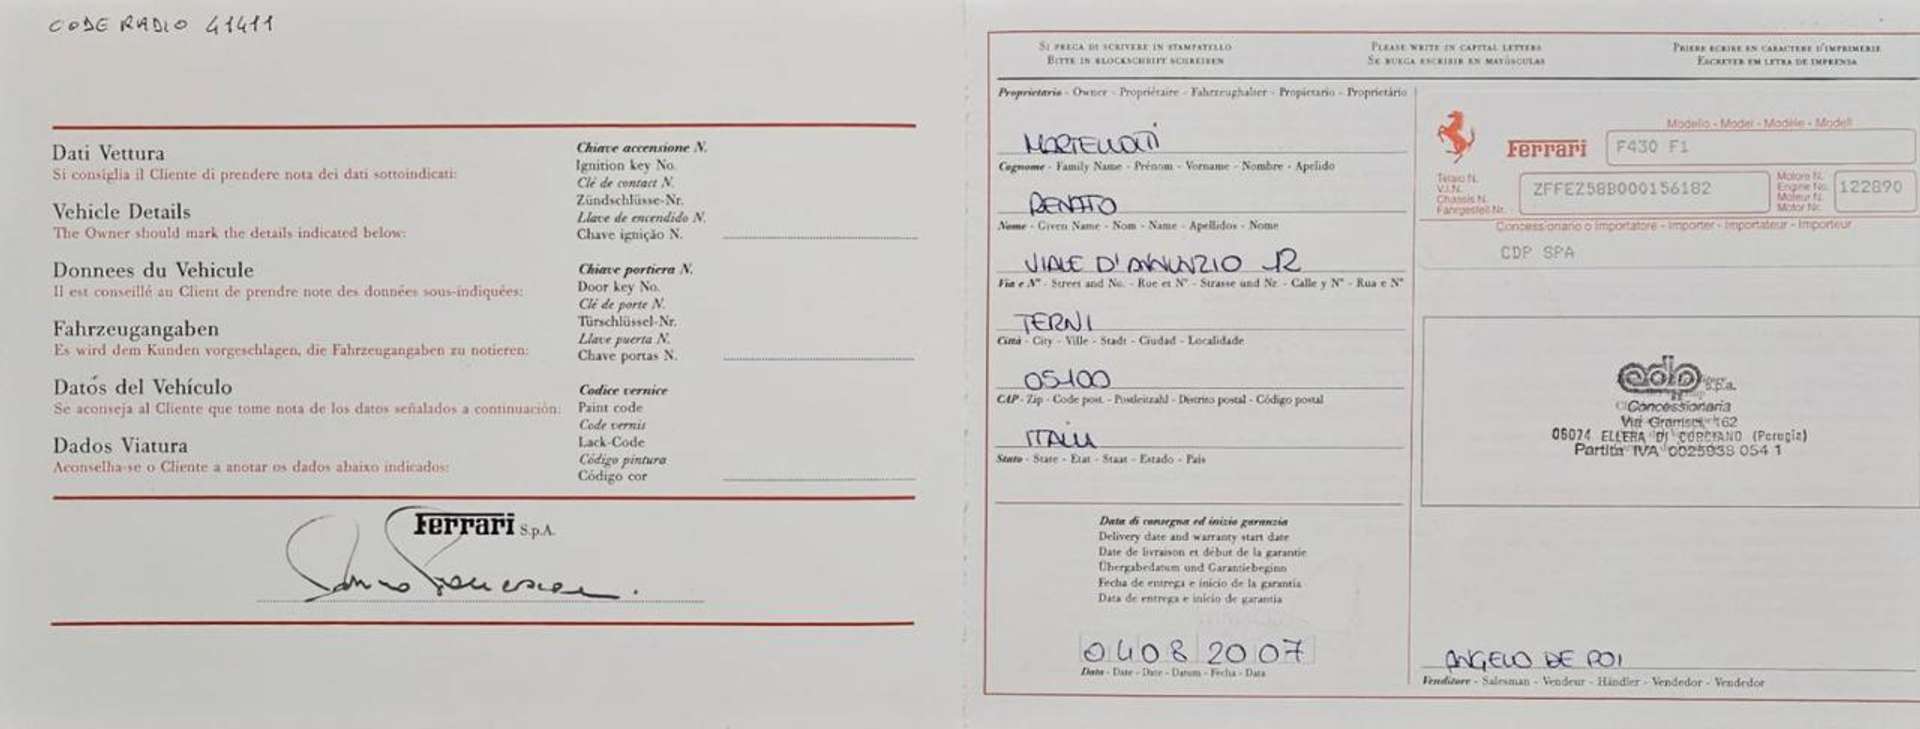 CODE RADIO 41411
Dati Vettura
Si consiglia il Cliente di prendere nota dei dati sottoindicati:
Vehicle Details
The Owner should mark the details indicated below:
Donnees du Vehicule
Il est conseillé au Client de prendre note des données sous-indiquées:
Fahrzeugangaben
Es wird dem Kunden vorgeschlagen, die Fahrzeugangaben zu notieren:
Datos del Vehículo
Se aconseja al Cliente que tome nota de los datos señalados a continuación:
Dados Viatura
Aconselha-se o Cliente a anotar os dados abaixo indicados:
Chiave accensione N.
Ignition key No.
Clé de contact N.
Zündschlüsse-Nr.
Llave de encendido N.
Chave ignição N.
Chiave portiera N.
Door key No.
Clé de porte N.
Türschlüssel-Nr.
Llave puerta N.
Chave portas N.
Codice vernice
Paint code
Code vernis
Lack-Code
Código pintura
Código cor
Ferrari S.p.A.
Si prega di scrivere in stampatello
Bitte in Blockschrift schreiben
Please write in capital letters
Se ruega escribir en mayúsculas
Prière ecrire en caractere d'imprimerie
Escrever em letra de imprensa
Proprietario - Owner - Propriétaire - Fahrzeughalter - Propietario - Proprietário
MARTELLOTTI
Cognome - Family Name - Prénom - Vorname - Nombre - Apelido
RENATO
Nome - Given Name - Nom - Name - Apellidos - Nome
VIALE D'ANNUNZIO 12
Via e N° - Street and No. - Rue et N° - Strasse und Nr. - Calle y N° - Rua e N°
TERNI
Città - City - Ville - Stadt - Ciudad - Localidade
05100
CAP - Zip - Code post. - Postleitzahl - Distrito postal - Código postal
ITALIA
Stato - State - Etat - Staat - Estado - País
Data di consegna ed inizio garanzia
Delivery date and warranty start date
Date de livraison et début de la garantie
Übergabedatum und Garantiebeginn
Fecha de entrega e inicio de la garantía
Data de entrega e início de garantia
04 08 2007
Data - Date - Date - Datum - Fecha - Data
Modello - Model - Modèle - Modell
Ferrari F430 F1
Telaio N.
V.I.N.
Chassis N.
Fahrgestell Nr.
ZFFEZ58B000156182
Motore N.
Engine No.
Moteur N.
Motor Nr.
122890
Concessionario o Importatore - Importer - Importateur - Importeur
CDP SPA
cdp s.p.a.
Concessionaria
Via Gramsci, 162
06074 ELLERA DI CORCIANO (Perugia)
Partita IVA 0025938 054 1
ANGELO DE POI
Venditore - Salesman - Vendeur - Händler - Vendedor - Vendedor